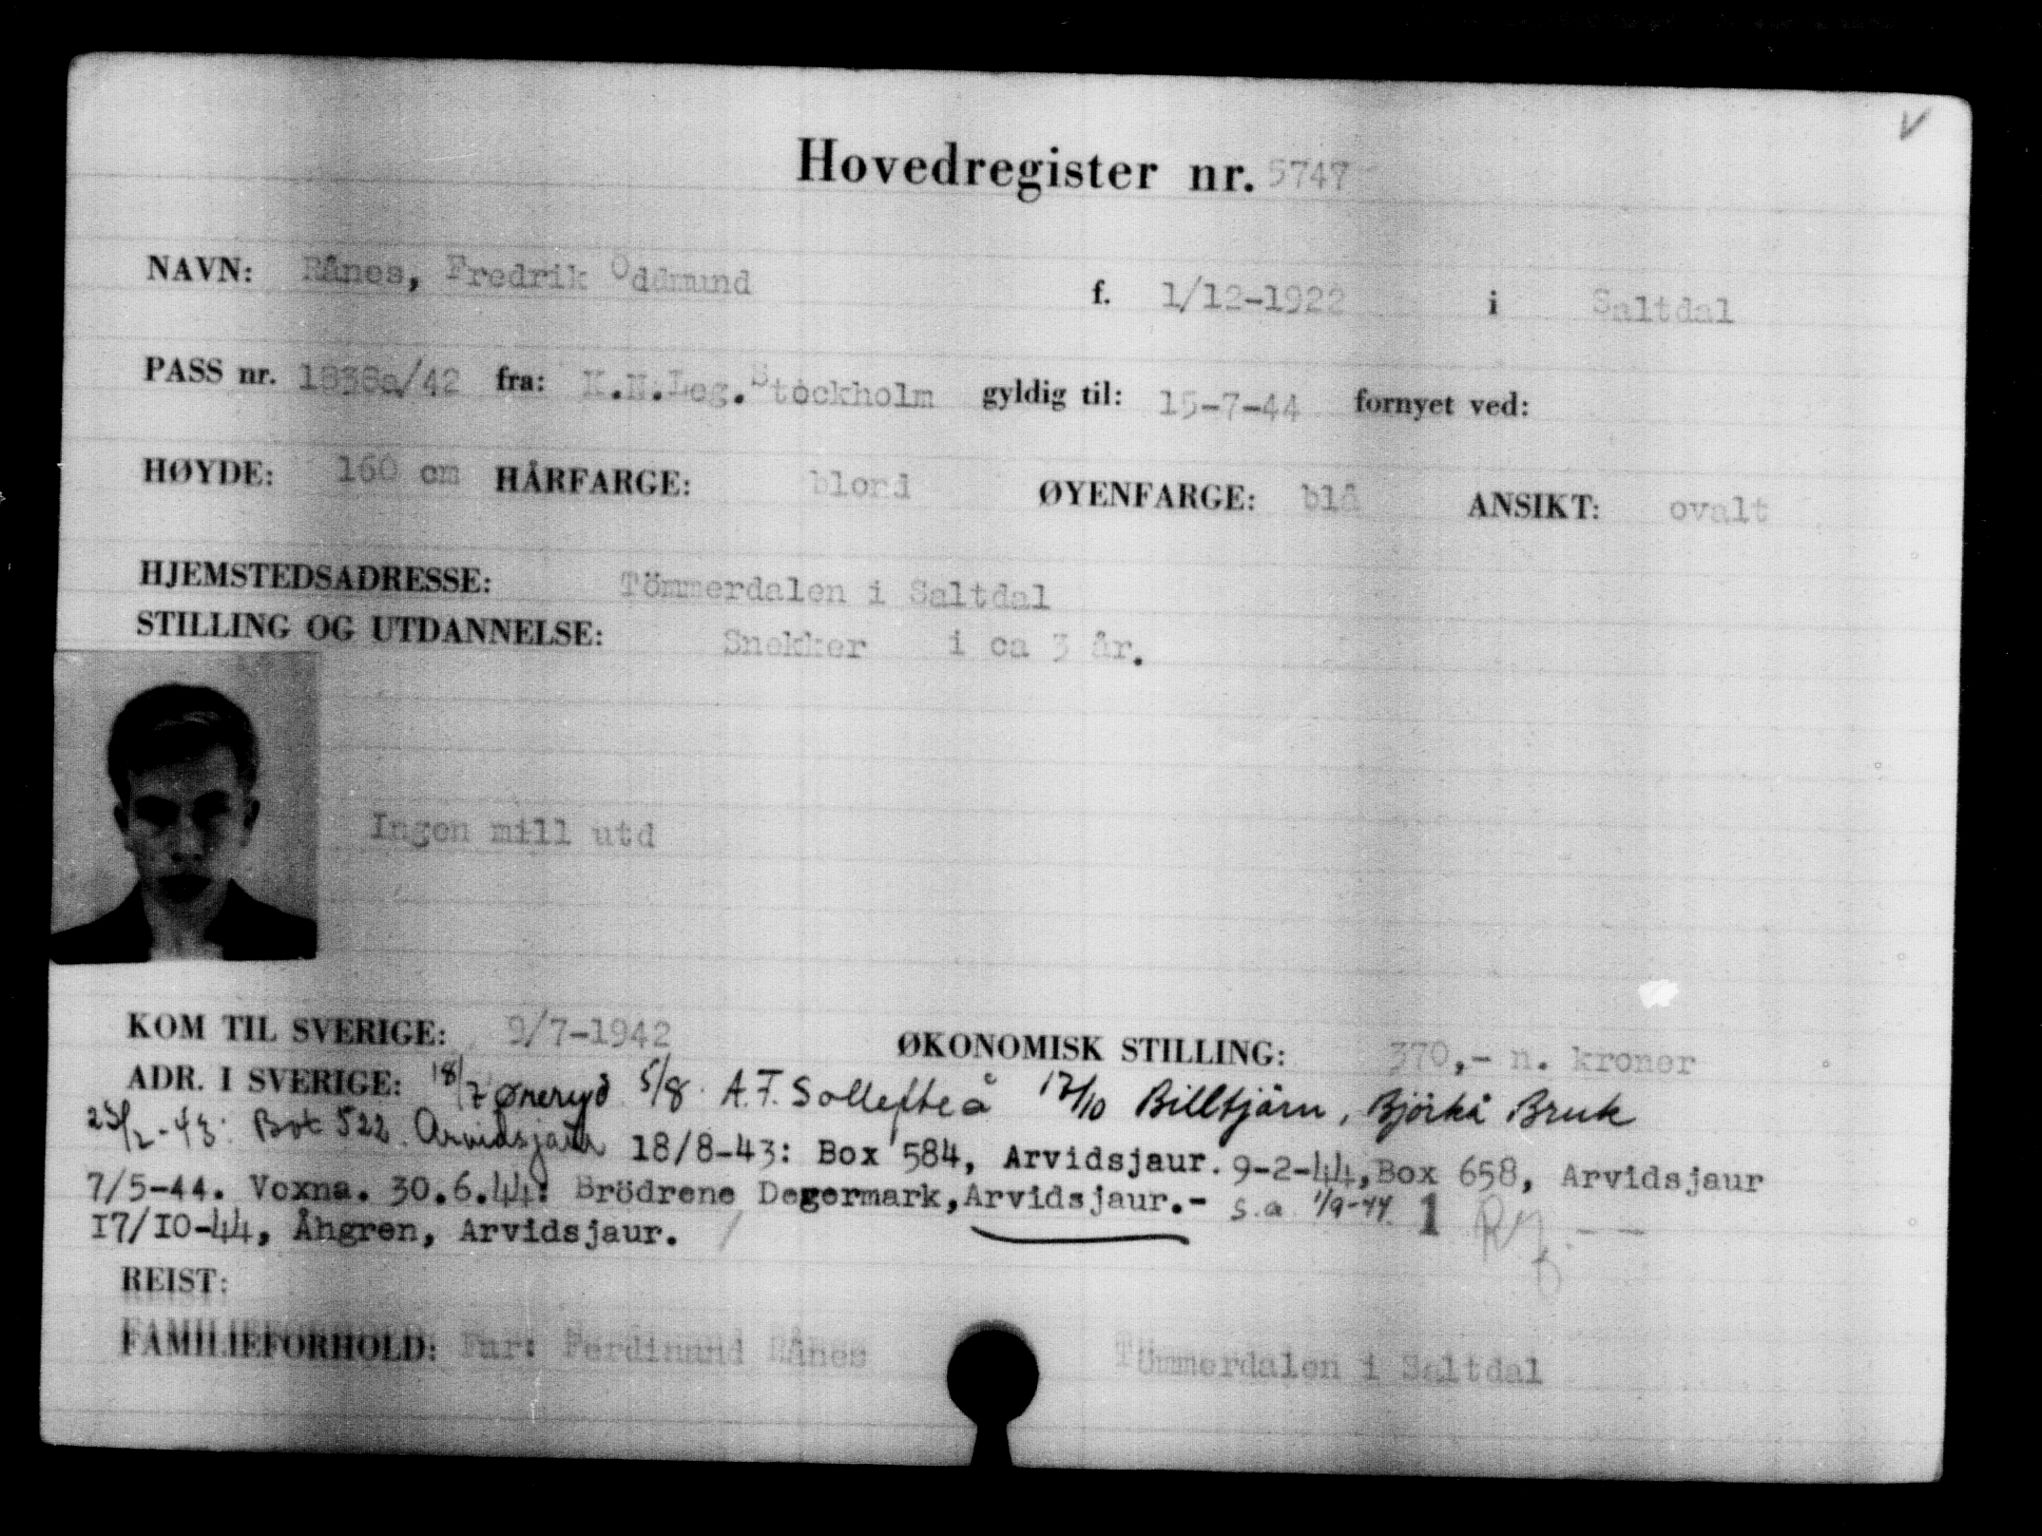 Hovedregister nr. 5747
NAVN: Rånes, Fredrik Oddmund f. 1/12-1922 i Saltdal
PASS nr. 1838a/42 fra: K.N.Leg.Stockholm gyldig til: 15-7-44 fornyet ved:
HØYDE: 160 cm HÅRFARGE: blond ØYENFARGE: blå ANSIKT: ovalt
HJEMSTEDSADRESSE: Tömmerdalen i Saltdal
STILLING OG UTDANNELSE: Snekker i ca 3 år.
Ingen mill utd
KOM TIL SVERIGE: 9/7-1942 ØKONOMISK STILLING: 370,- n. kroner
ADR. I SVERIGE: 18/7 Öneryd 5/8 A.F. Sollefteå 17/10 Billtjärn, Björkå Bruk
25/2-43: Box 522 Arvidsjaur 18/8-43: Box 584, Arvidsjaur. 9-2-44, Box 658, Arvidsjaur
7/5-44. Voxna. 30.6.44: Brödrene Degermark, Arvidsjaur.- s.a 1/9-44 1
17/10-44, Åhgren, Arvidsjaur.
REIST:
FAMILIEFORHOLD: Far: Ferdinand Rånes Tömmerdalen i Saltdal